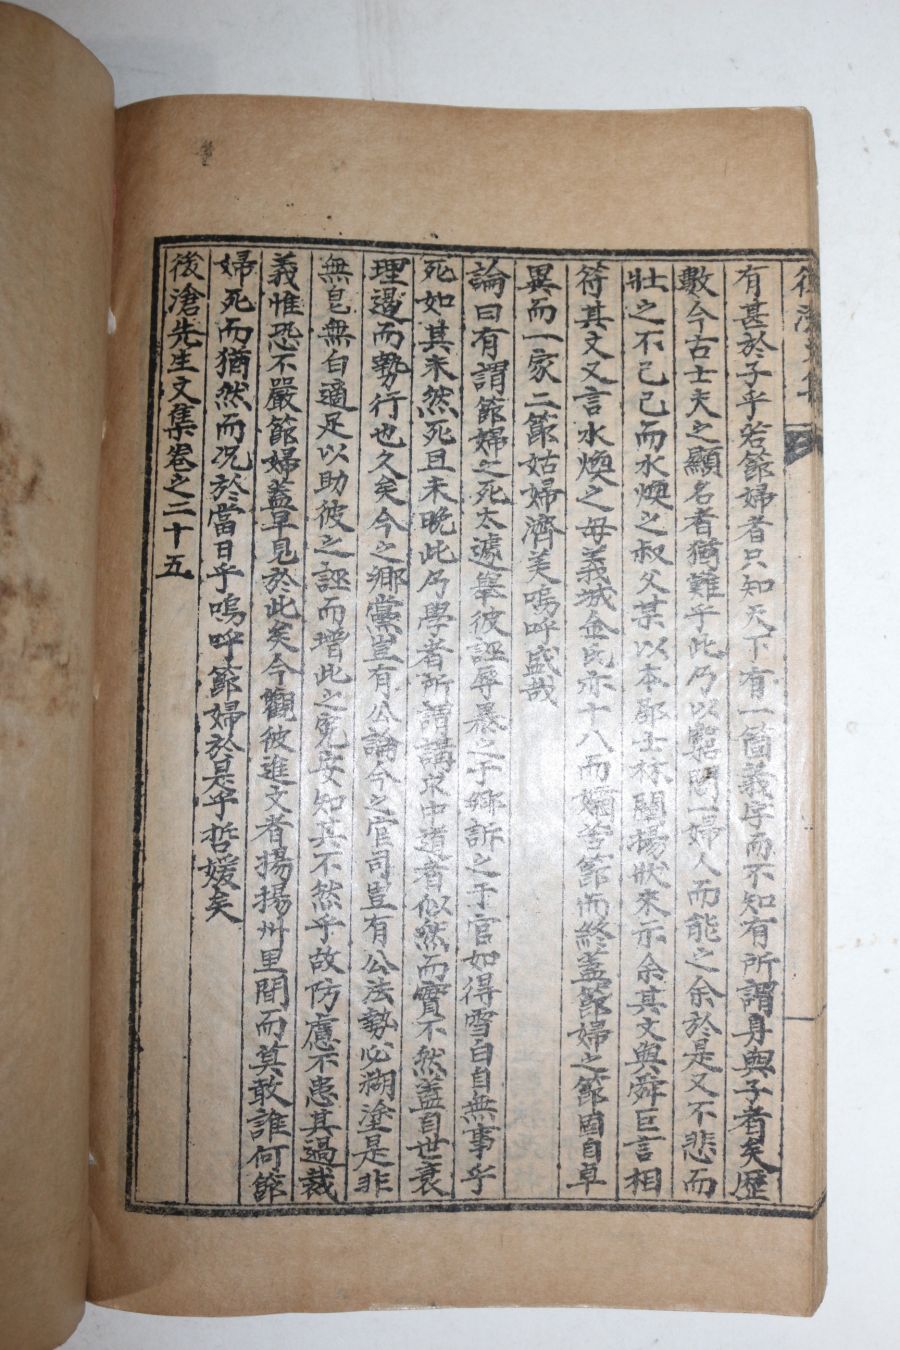 有甚於子乎若節婦者只知天下有一箇義字而不知有所謂身與子者矣歷
數今古士夫之顯名者猶難乎此乃以窮閻一婦人而能之余於是又不悲而
壯之不已已而水煥之叔父某以本郡士林闡揚狀來示余其文與舜臣言相
符其文又言水煥之母義城金氏亦十八而孀苦節而終蓋節婦之節固自卓
異而一家二節姑婦濟美嗚呼盛哉
論曰有謂節婦之死太遽擧彼誣辱暴之于鄉訴之于官如得雪白自無事乎
死如其未然死且未晚此乃學者所謂講求中道者似然而實不然蓋自世衰
理遏而勢行也久矣今之鄉黨豈有公論今之官司豈有公法勢必糊塗是非
無皂無白適足以助彼之誣而增此之寃安知其不然乎故防應不患其過裁
義惟恐不嚴節婦蓋早見於此矣今觀彼進文者揚揚州里間而莫敢誰何節
婦死而猶然而况於當日乎嗚呼節婦於是乎哲媛矣
後滄先生文集卷之二十五